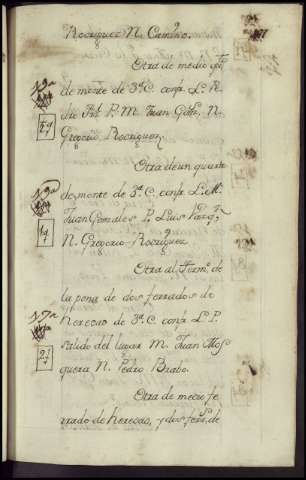 Rodriguez N. Camino.
Otra de medio qto
de monte de 3ª C. confª L. R.
P. M. Juan N.
Gregorio Rodriguez
Otra de un quarto
de monte de 3ª C. confª L. M.
Juan Gonzales P. Luis
N. Gregorio Rodriguez
Otra al Termº de
la pena de dos ferrados de
heredad de 3ª C. confª L. P.
salido del lugar M. Juan Mos
quera N. Pedro Brabo.
Otra de medio fe
rrado de heredad, y dos ferrs. de